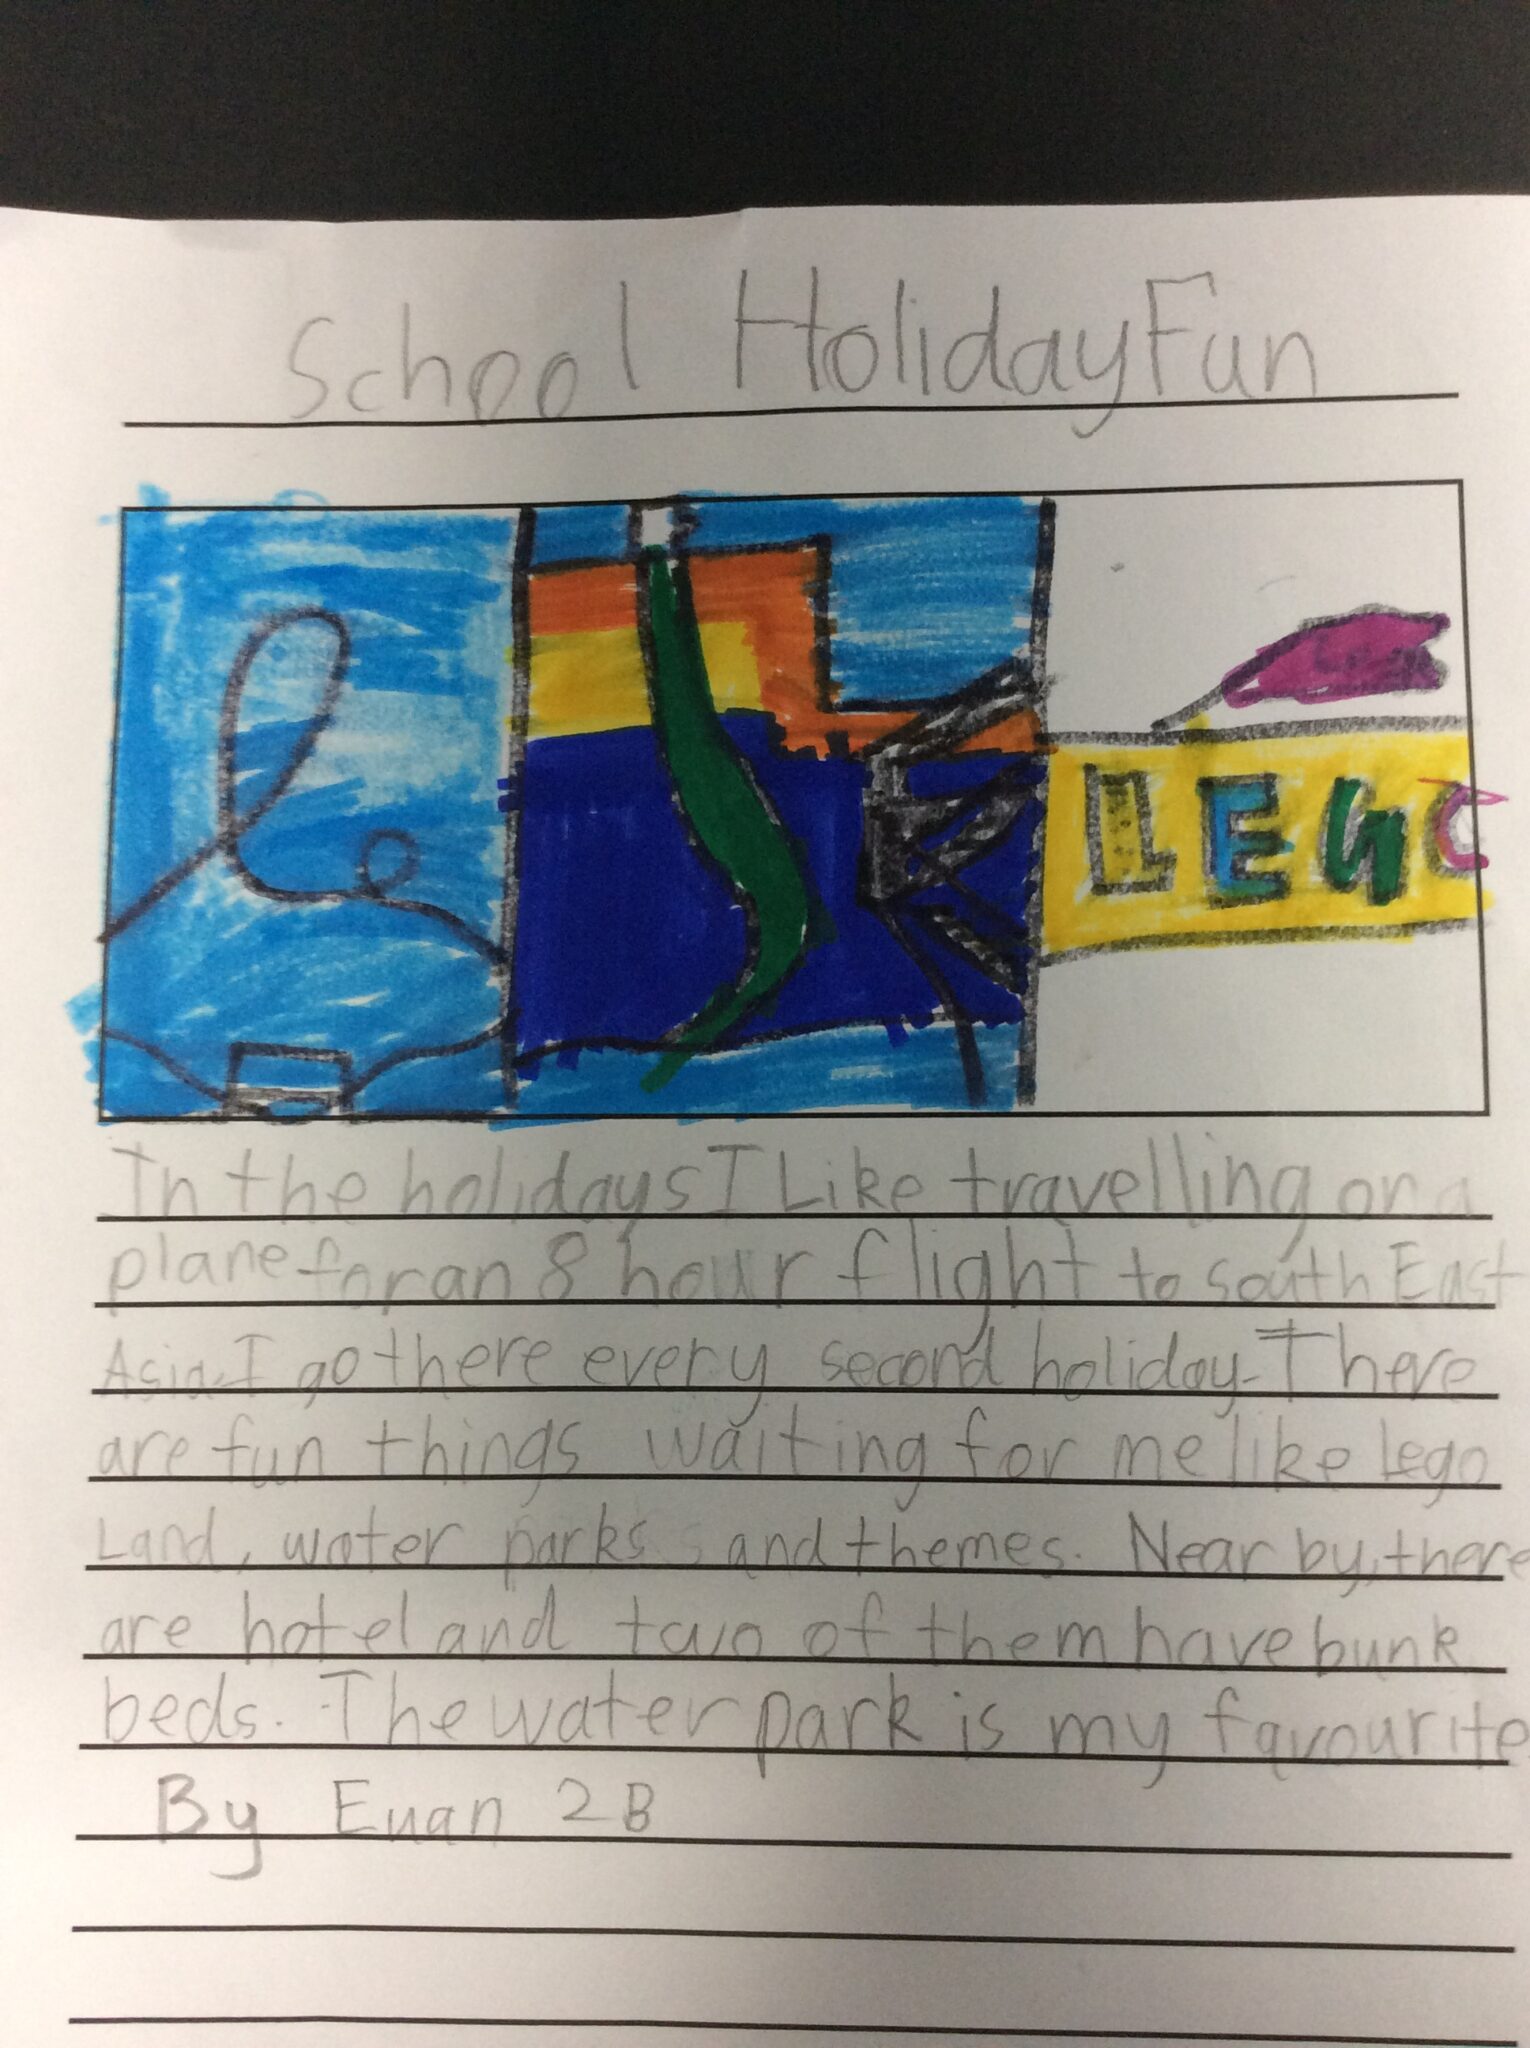 School Holiday Fun
LEGO
In the holidays I Like travelling on a
plane for an 8 hour flight to south East
Asia. I go there every second holiday. There
are fun things waiting for me like Lego
Land, water parks and themes. Near by, there
are hotel and two of them have bunk
beds. The water park is my favourite
By Euan 2B